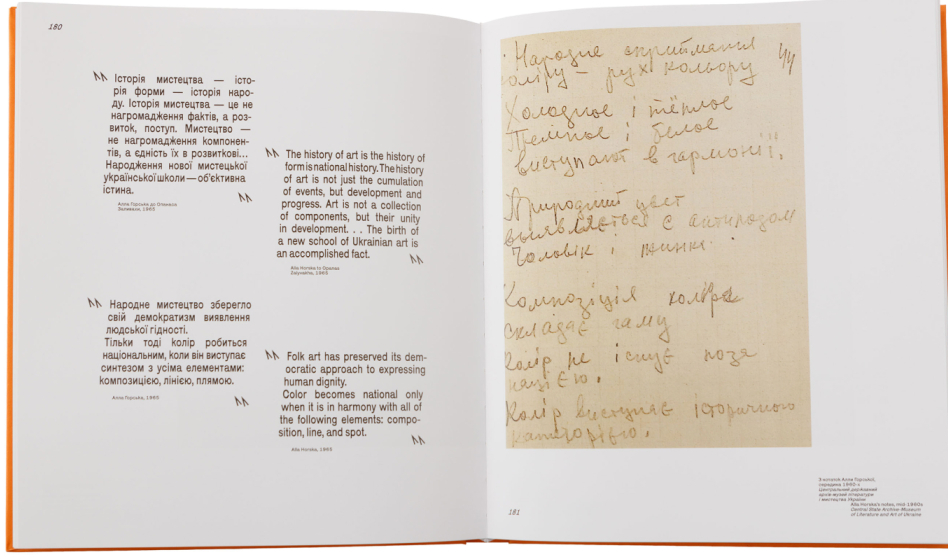 180
Історія мистецтва — істо-
рія форми — історія наро-
ду. Історія мистецтва — це не
нагромадження фактів, а роз-
виток, поступ. Мистецтво —
не нагромадження компонен-
тів, а єдність їх в розвиткові...
Народження нової мистецької
української школи — об'єктивна
істина.
Алла Горська до Опанаса
Заливахи, 1963
The history of art is the history of
form is national history. The history
of art is not just the cumulation
of events, but development and
progress. Art is not a collection
of components, but their unity
in development. . . The birth of
a new school of Ukrainian art is
an accomplished fact.
Alla Horska to Opanas
Zalyvakha, 1963
Народне мистецтво зберегло
свій демократизм виявлення
людської гідності.
Тільки тоді колір робиться
національним, коли він виступає
синтезом з усіма елементами:
композицією, лінією, плямою.
Алла Горська, 1963
Folk art has preserved its dem-
ocratic approach to expressing
human dignity.
Color becomes national only
when it is in harmony with all of
the following elements: compo-
sition, line, and spot.
Alla Horska, 1963
Народне сприймання
коліру – рух кольору
Холодное і тёплое
Темное і белое
виступают в гармонії.
Природний цвет
выявляется с антиподом
Чоловік і жінка.
Композиція коліра
складає гаму
Колір не існує поза
нацією.
Колір виступає історичного
категорією.
181
З нотаток Алли Горської,
середина 1960-х
Центральний державний
архів-музей літератури
і мистецтва України
Alla Horska's notes, mid-1960s
Central State Archive-Museum
of Literature and Art of Ukraine